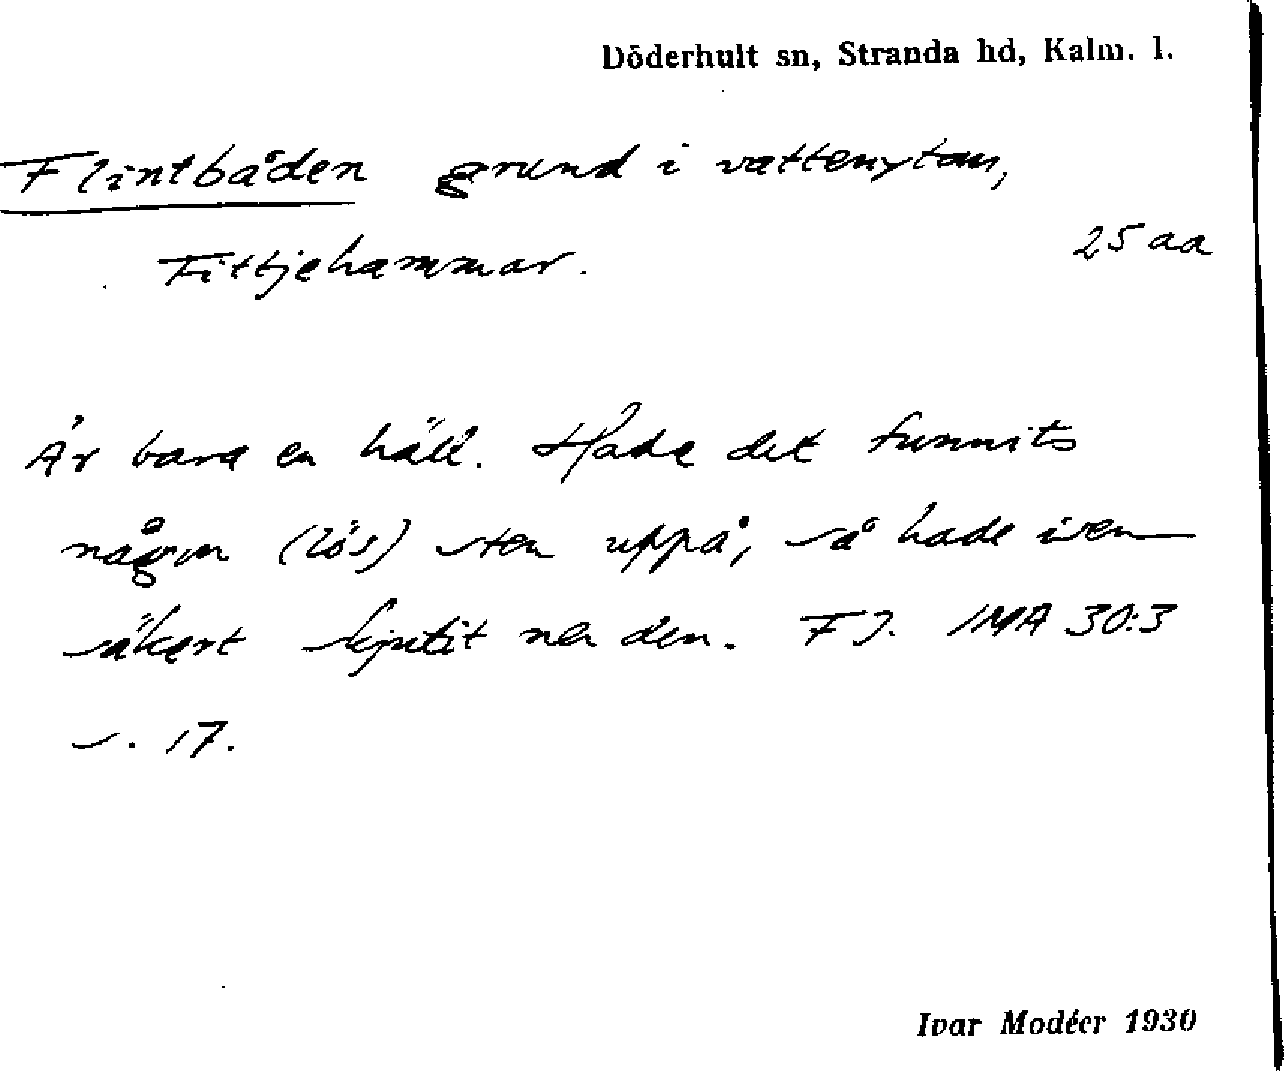 Döderhult sn, Stranda hd, Kalm. l.
Flintbåden grund i vattenytan,
25 aa
Fittjehammar.
Är bara en häll. Hade det funnits
någon (lös) sten uppå, så hade isen
säkert skjutit ner den. FJ. IMA 30:3
s. 17.
Ivar Modéer 1930